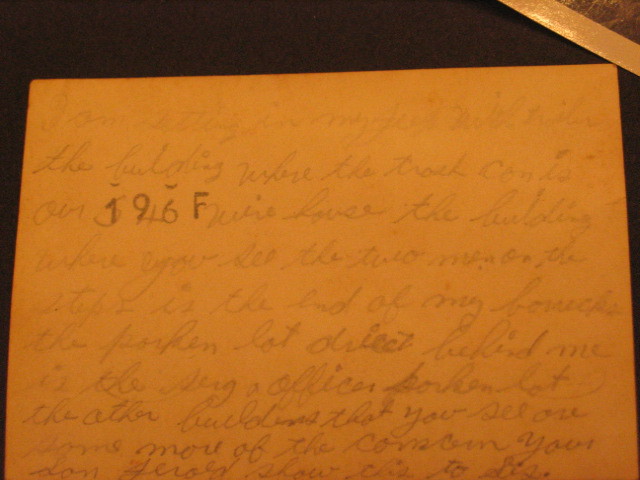 I am sitting in my jeep
the building where the trash can is
our wire house the building
where you see the two men on the
steps is the end of my borrecks
the porken lot direct behind me
is the serg officer porken lot
the other buildens that you see are
some more of the your
son show this to sis.
196F